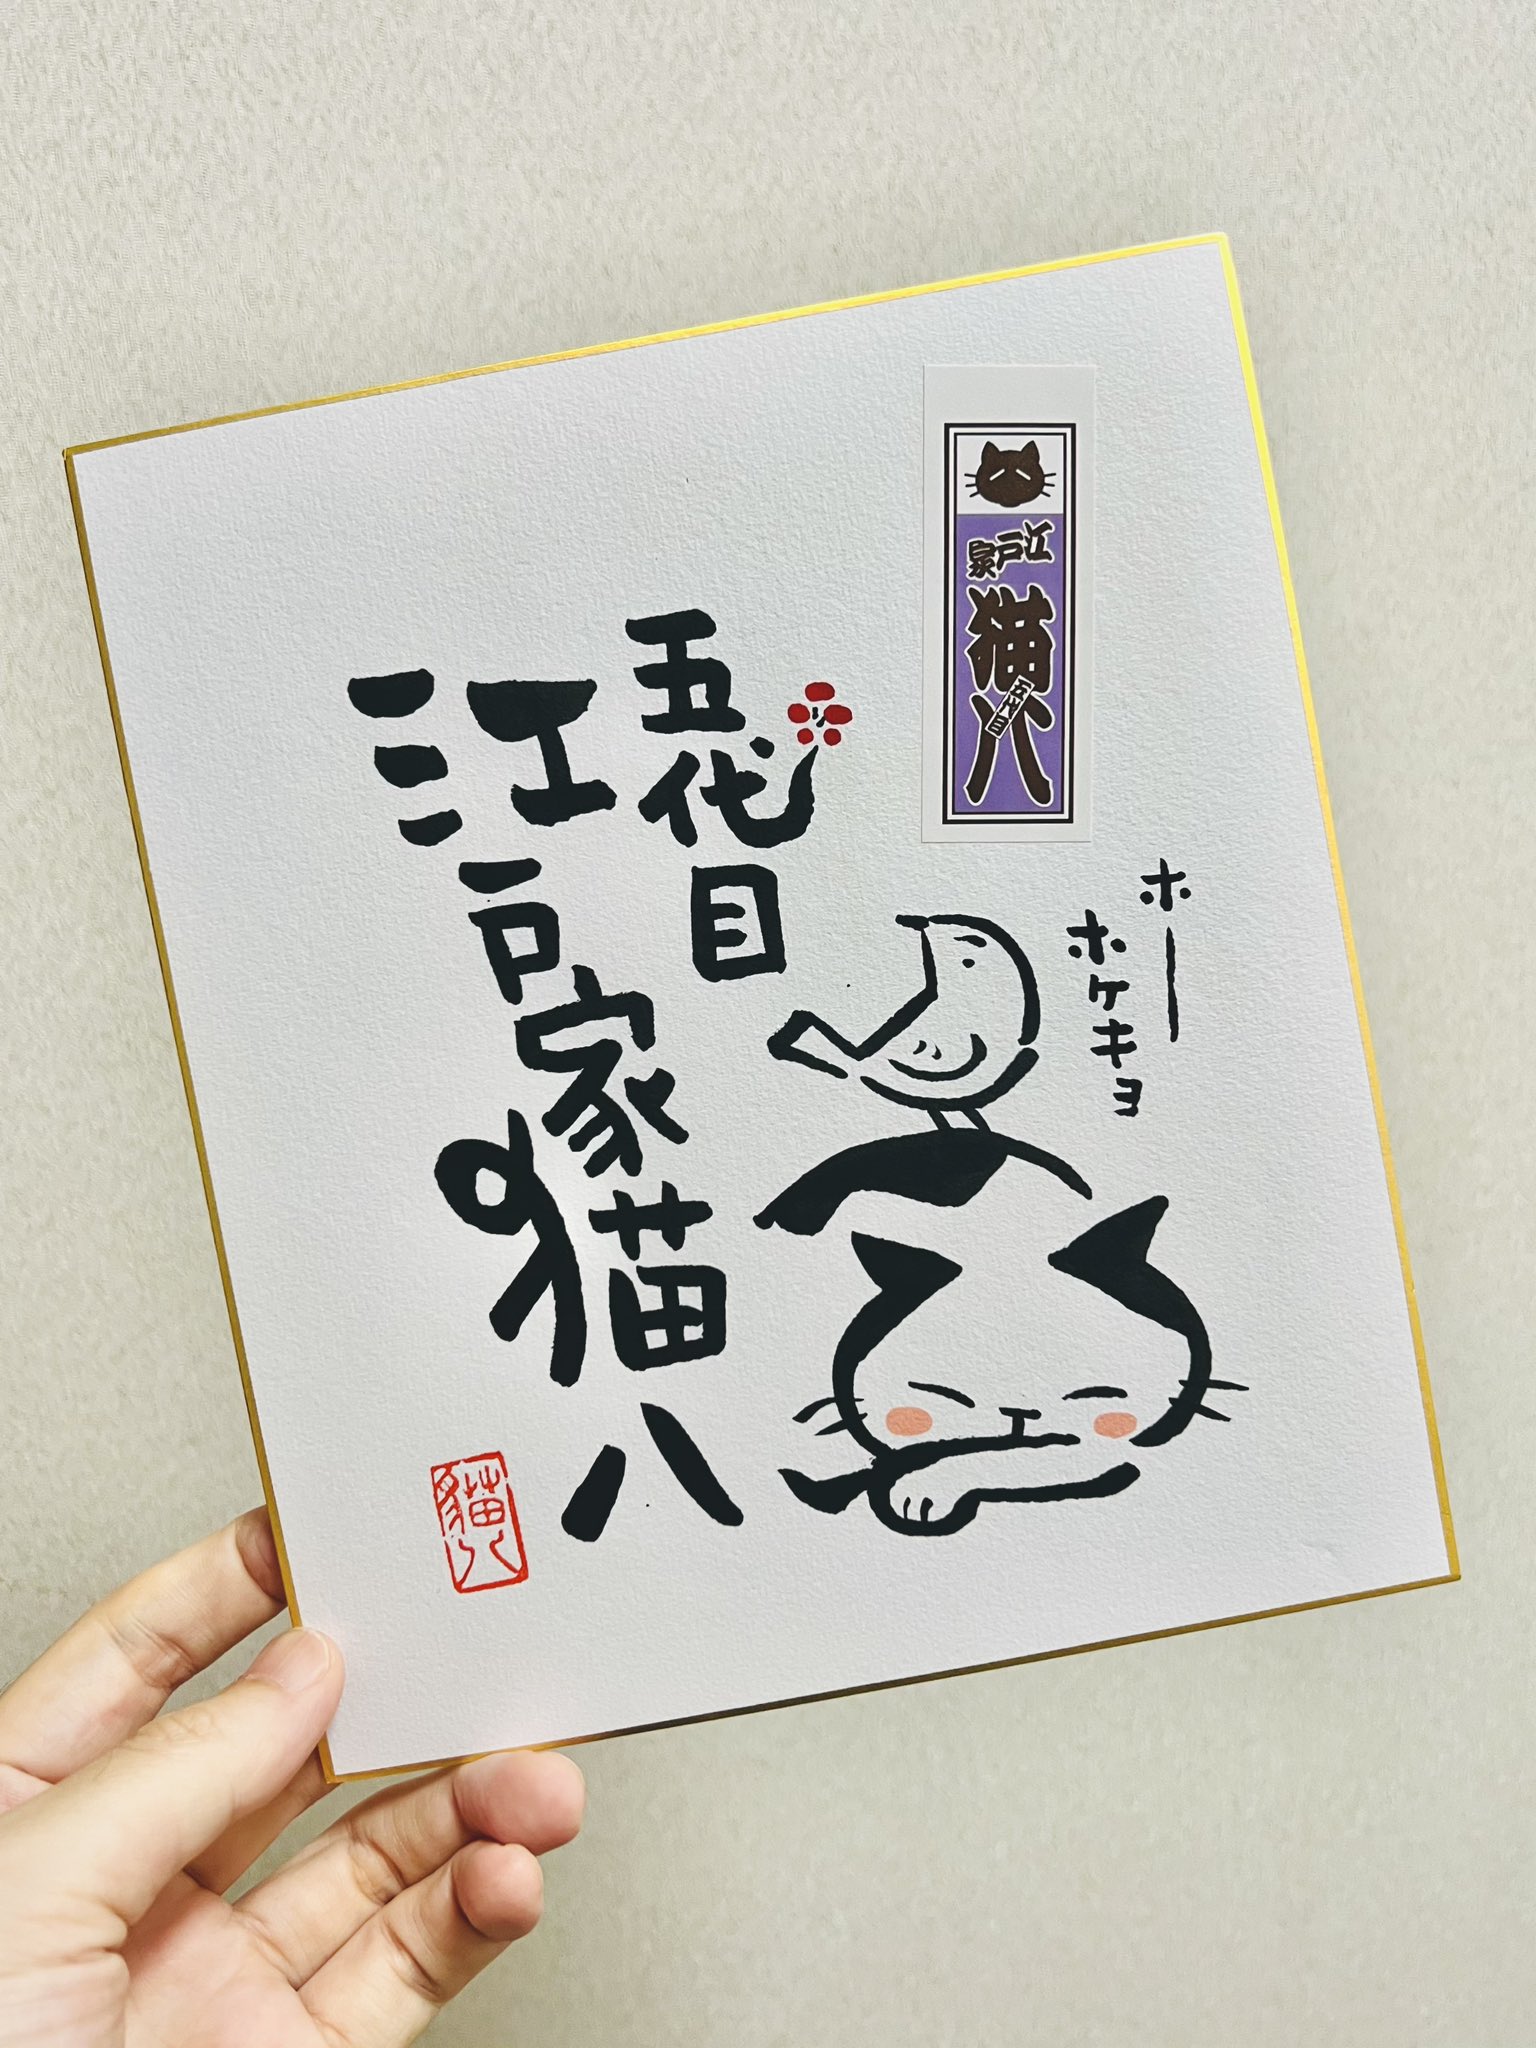 江戸家
猫八
五代目
ホー
ホケキョ
五代目
江戸家猫八
猫八